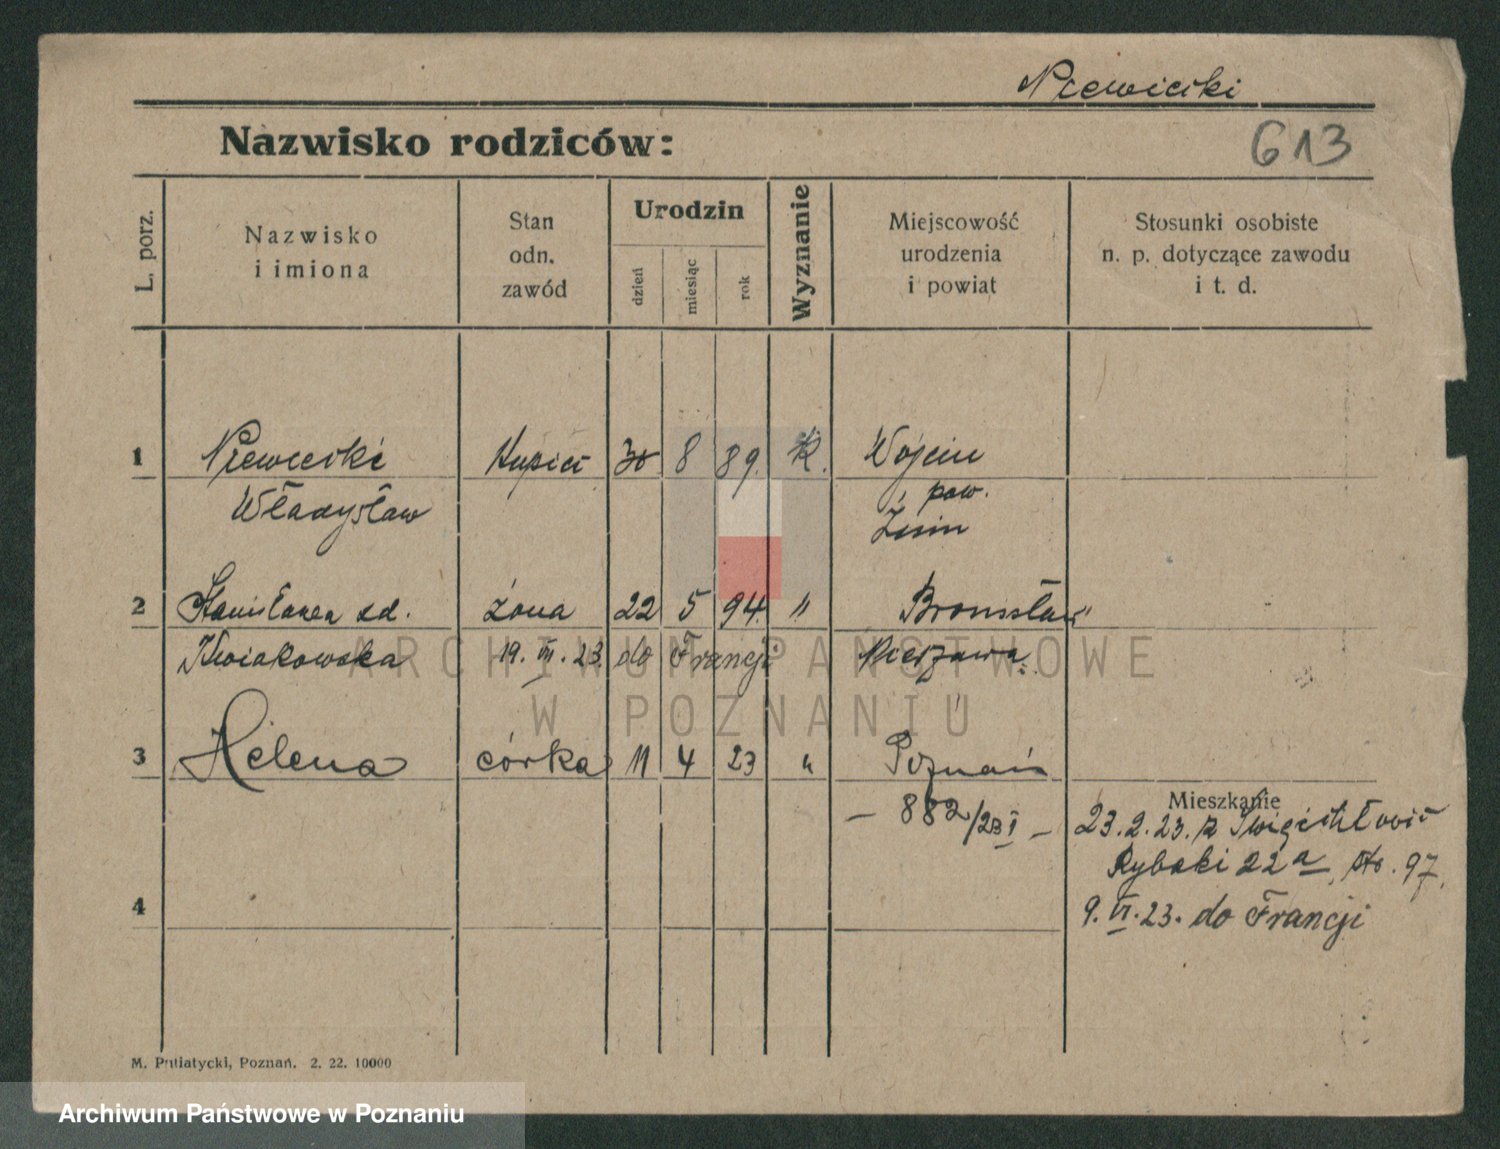 613
Nazwisko rodziców:
L. porz.
Nazwisko
i imiona
Stan
odn.
zawód
Urodzin
dzień
miesiąc
rok
Wyznanie
Miejscowość
urodzenia
i powiat
Stosunki osobiste
n. p. dotyczące zawodu
i t. d.
1
Władysław
30 8 89. K.
Wójcin
pow.
Żnin
2
Stanisława zd.
żona
22 5 94 "
Bronisław"
Kwiakowska
19. VI. 23. do Francji
3
Helena
córka
11 4 23 "
Poznań
— 882/23 I —
Mieszkanie
23. 2. 23. z
Rybaki 22a 97.
9. VI. 23. do Francji
4
M. Putiatycki, Poznań. 2. 22. 10000
ARCHIWUM PAŃSTWOWE
W POZNANIU
Archiwum Państwowe w Poznaniu